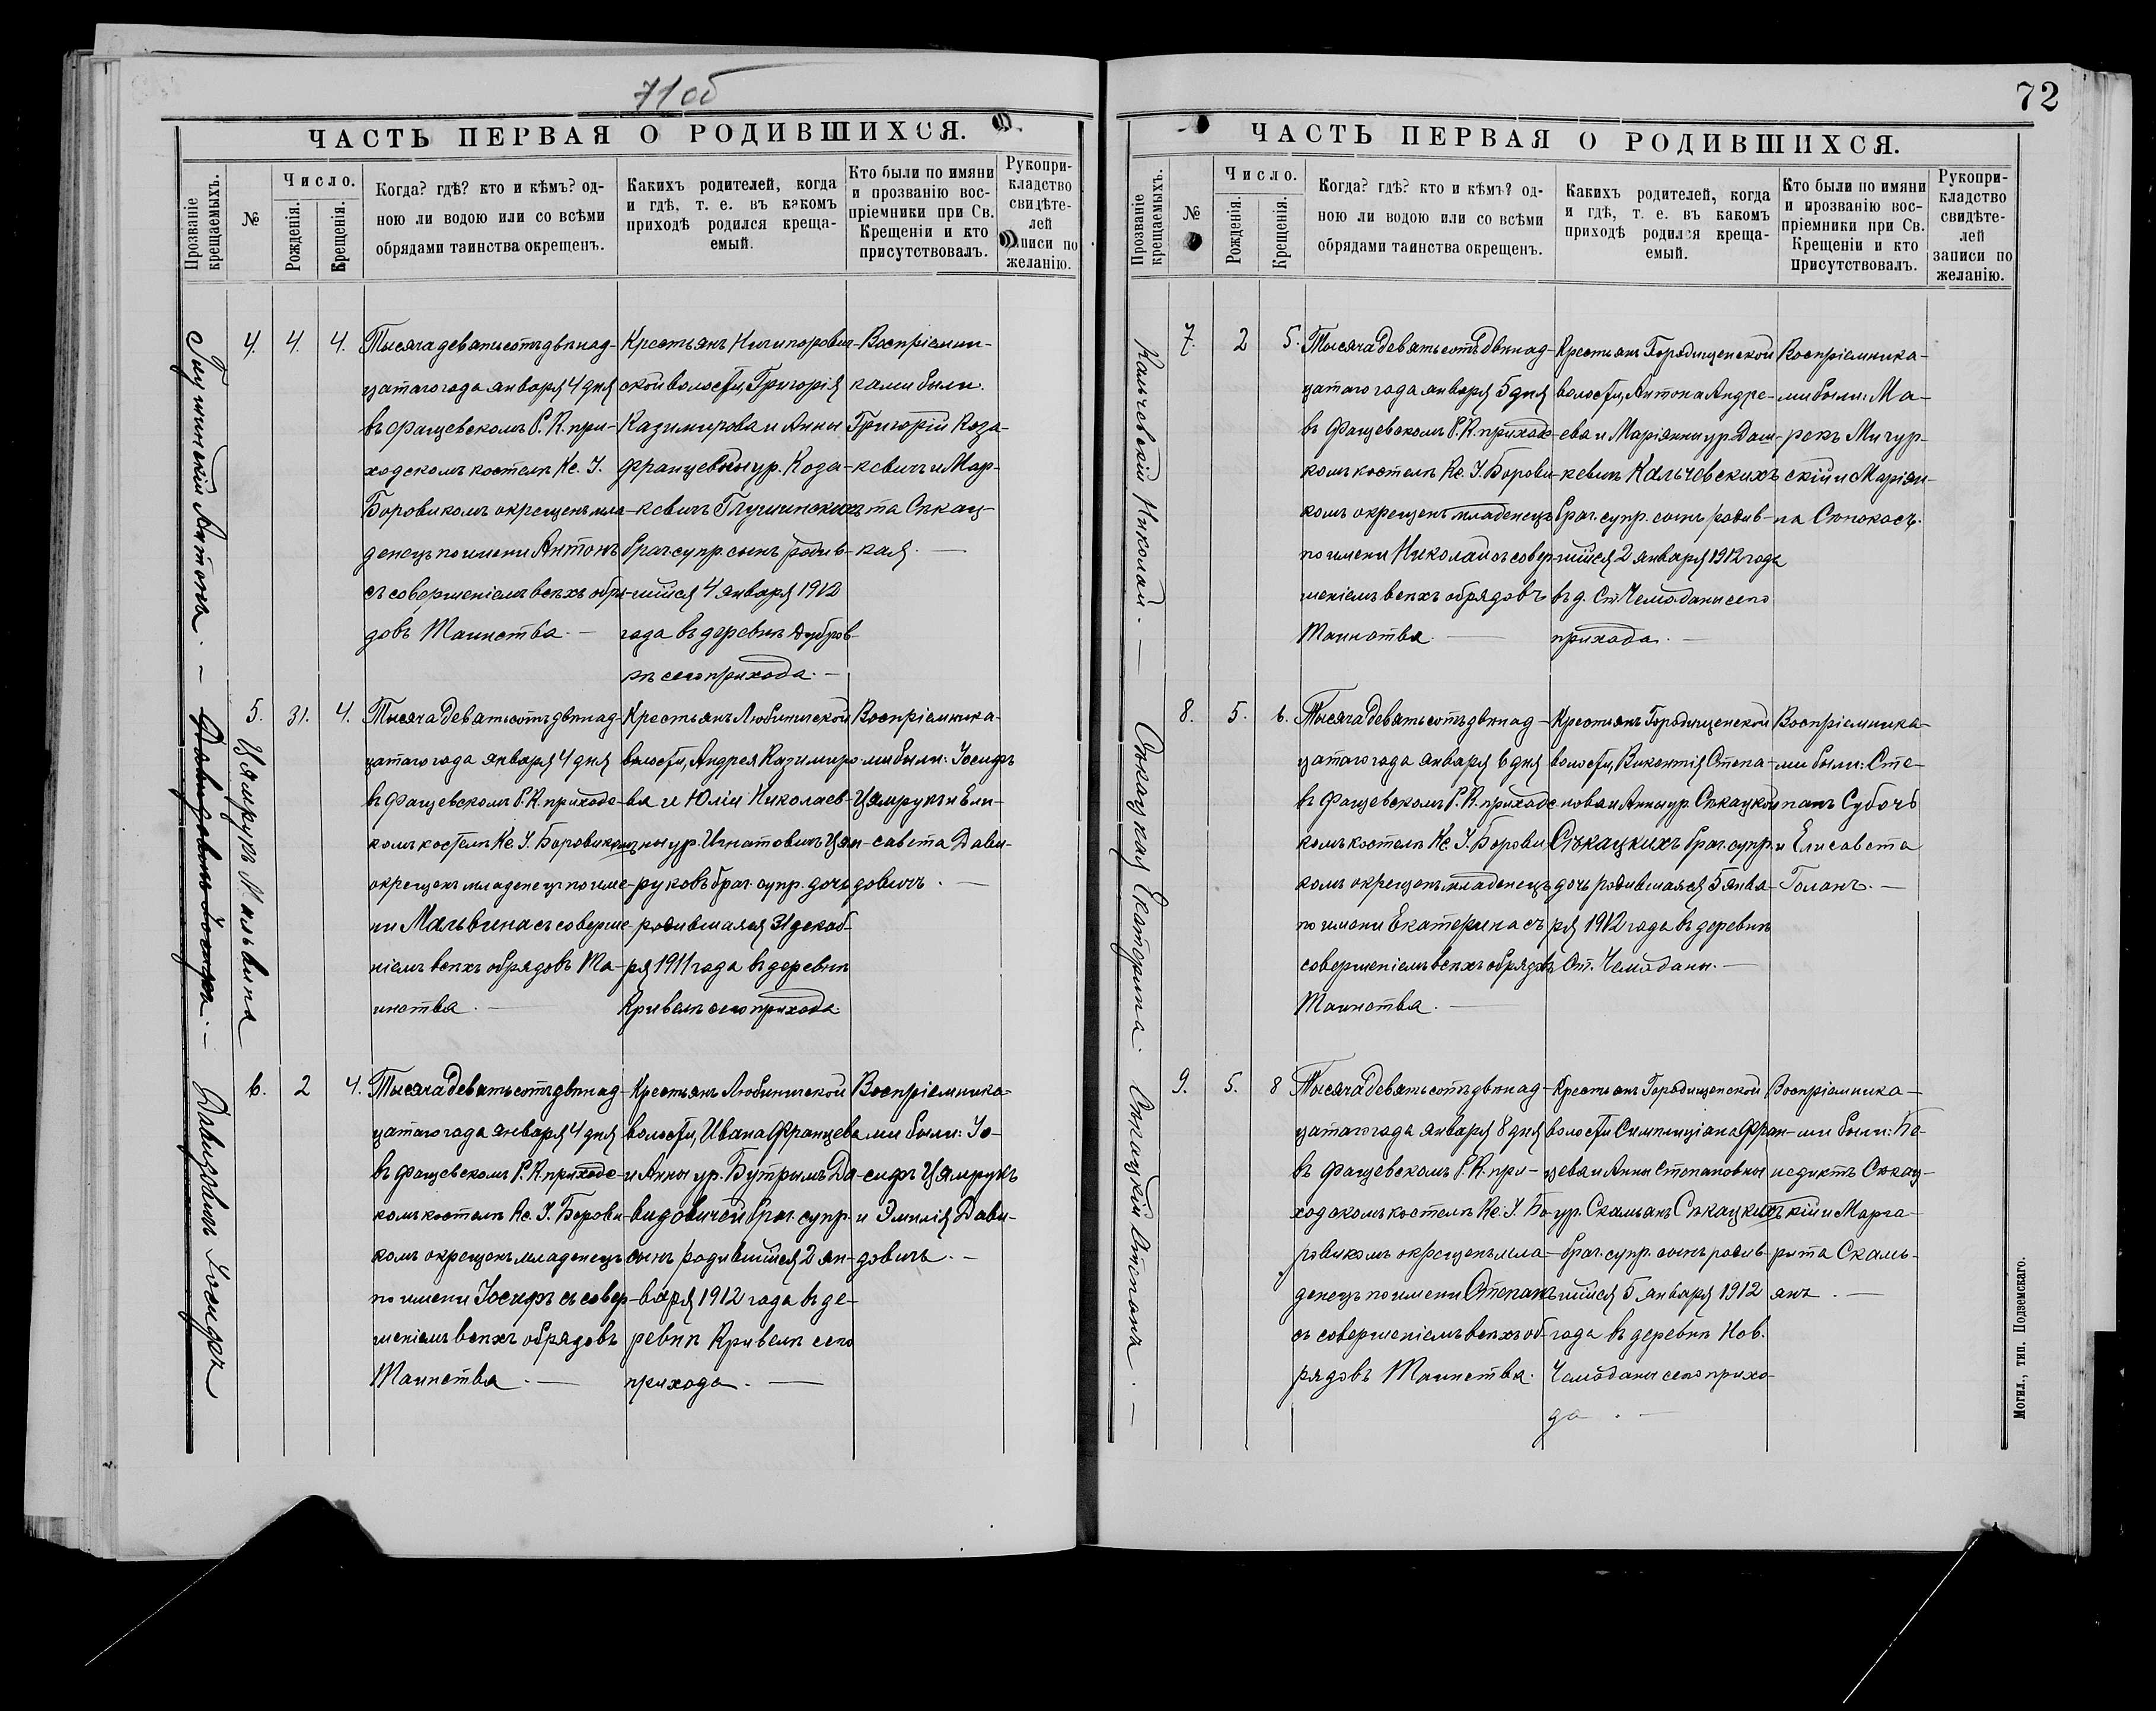 71 об
ЧАСТЬ ПЕРВАЯ О РОДИВШИХСЯ.
Прозваніе крещаемыхъ.
№
Число.
Рожденія.
Крещенія.
Когда? гдѣ? кто и кѣмъ? од-
ною ли водою или со всѣми
обрядами таинства окрещенъ.
Какихъ родителей, когда
и гдѣ, т. е. въ какомъ
приходѣ родился креща-
емый.
Кто были по имяни
и прозванію вос-
пріемники при Св.
Крещеніи и кто
присутствовалъ.
Рукопри-
кладство
свидѣте-
лей
записи по
желанію.
Глушинскій Антонъ. —
4. 4. 4.
Тысяча девятьсотъ двѣнад-
цатаго года января 4 дня
въ Фащевскомъ Р. К. при-
ходскомъ костелѣ Кс. І.
Боровикомъ окрещенъ мла-
денецъ по имени Антонъ
съ совершеніемъ всѣхъ обря-
довъ Таинства. —
Крестьянъ Ничипорович-
ской волости, Григорія
Казимирова и Анны
Францевны ур. Коза-
кевичъ Глушинскихъ
брач. супр. сынъ родив-
шійся 4 января 1912
года въ деревнѣ Дубров-
кѣ сего прихода. —
Воспріемни-
ками были
Григорій Коза-
кевичъ и Мар-
та Сѣкац-
кая. —
Давидовичъ Іосифъ. —
Цямрукъ Мальвина
5. 31. 4.
Тысяча девятьсотъ двѣнад-
цатаго года января 4 дня
въ Фащевскомъ Р. К. приходс-
комъ костелѣ Кс. І. Боровикомъ
окрещенъ младенецъ по име-
ни Мальвина съ соверше-
ніемъ всѣхъ обрядовъ Та-
инства. —
Крестьянъ Любиничской
волости, Андрея Казимиро-
ва и Юліи Николаев-
ны ур. Игнатовичъ Цям-
руковъ брач. супр. дочь
родившаяся 31 декаб-
ря 1911 года въ деревнѣ
Кривелѣ сего прихода.
Воспріемника-
ми были: Іосифъ
Цямрукъ и Ели-
савета Дави-
довичъ. —
Давидовичъ Іосифъ
6. 2 4.
Тысяча девятьсотъ двѣнад-
цатаго года января 4 дня
въ Фащевскомъ Р. К. приходс-
комъ костелѣ Кс. І. Борови-
комъ окрещенъ младенецъ
по имени Іосифъ съ совер-
шеніемъ всѣхъ обрядовъ
Таинства. —
Крестьянъ Любиничской
волости, Ивана Францева
и Анны ур. Бутрымъ Да-
видовичей брач. супр.
сынъ родившійся 2 ян-
варя 1912 года въ де-
ревнѣ Кривелѣ сего
прихода. —
Воспріемника-
ми были: Іо-
сифъ Цямрукъ
и Эмилія Дави-
довичъ. —
72
ЧАСТЬ ПЕРВАЯ О РОДИВШИХСЯ.
Прозваніе крещаемыхъ.
№
Число.
Рожденія.
Крещенія.
Когда? гдѣ? кто и кѣмъ? од-
ною ли водою или со всѣми
обрядами таинства окрещенъ.
Какихъ родителей, когда
и гдѣ, т. е. въ какомъ
приходѣ родился креща-
емый.
Кто были по имяни
и прозванію вос-
пріемники при Св.
Крещеніи и кто
присутствовалъ.
Рукопри-
кладство
свидѣте-
лей
записи по
желанію.
Кальчевскій Николай. —
7. 2 5.
Тысяча девятьсотъ двѣнад-
цатаго года января 5 дня
въ Фащевскомъ Р. К. приходс-
комъ костелѣ Кс. І. Борови-
комъ окрещенъ младенецъ
по имени Николай съ совер-
шеніемъ всѣхъ обрядовъ
Таинства. —
Крестьянъ Городищенской
волости, Антона Андре-
ева и Маріянны ур. Даш-
кевичъ Кальчевскихъ
брач. супр. сынъ родив-
шійся 2 января 1912 года
въ д. Ст. Чемоданы сего
прихода. —
Воспріемника-
ми были: Ма-
рекъ Мигур-
скій и Маріян-
на Сюпокасъ.
Сѣкацкая Екатерина.
8. 5. 6.
Тысяча девятьсотъ двѣнад-
цатаго года января 6 дня
въ Фащевскомъ Р. К. приходс-
комъ костелѣ Кс. І. Борови-
комъ окрещенъ младенецъ
по имени Екатерина съ
совершеніемъ всѣхъ обрядовъ
Таинства. —
Крестьянъ Городищенской
волости, Викентія Степа-
нова и Анны ур. Сѣкацкой
Сѣкацкихъ брач. супр.
дочь родившаяся 5 янва-
ря 1912 года въ деревнѣ
Ст. Чемоданы. —
Воспріемника-
ми были: Сте-
панъ Субочъ
и Елисавета
Голанъ. —
Сѣкацкій Степанъ. —
9. 5. 8
Тысяча девятьсотъ двѣнад-
цатаго года января 8 дня
въ Фащевскомъ Р. К. при-
ходскомъ костелѣ Кс. І. Бо-
ровикомъ окрещенъ мла-
денецъ по имени Степанъ
съ совершеніемъ всѣхъ об-
рядовъ Таинства.
Крестьянъ Городищенской
волости Симплиціана Фран-
цева и Анны Степановны
ур. Скальянъ Сѣкацкихъ
брач. супр. сынъ родив-
шійся 5 января 1912
года въ деревнѣ Нов.
Чемоданы сего прихо-
да. —
Воспріемника-
ми были: Бе-
недиктъ Сѣкац-
кій и Марга-
рита Скаль-
янъ. —
Могил., тип. Подземскаго.